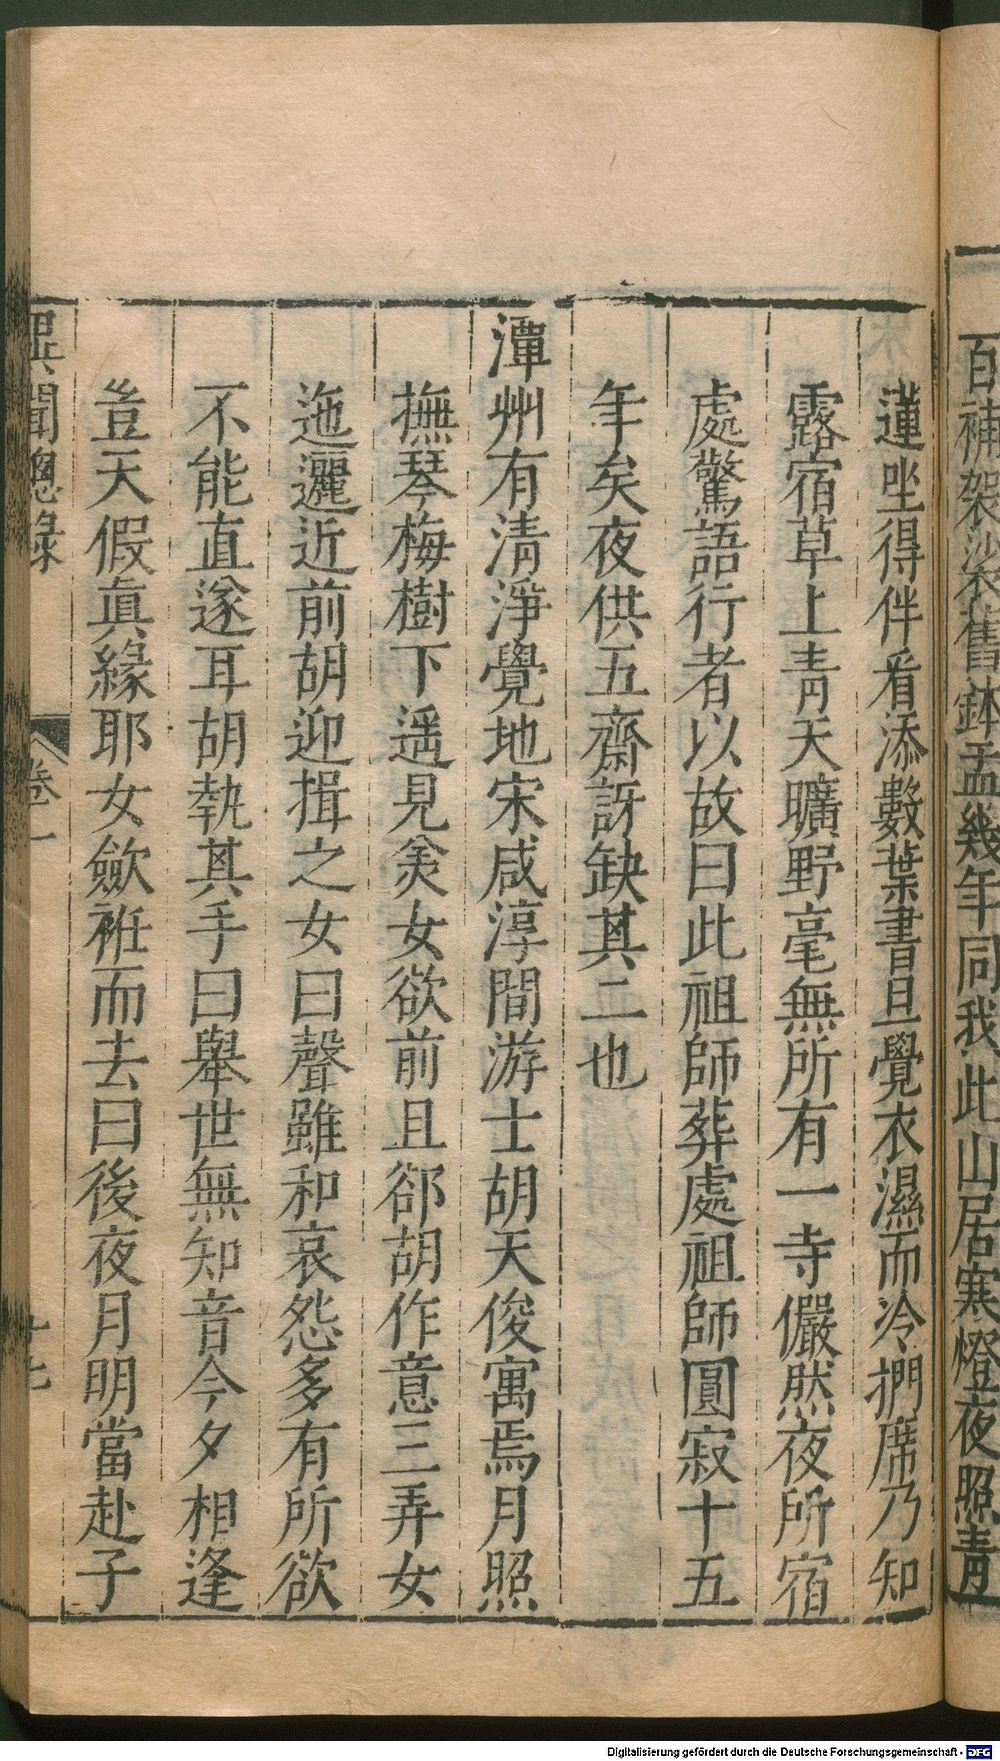 百補袈裟舊鉢盂幾年同我此山居寒燈夜照青
蓮坐得伴看添數葉書旦覺衣濕而冷捫席乃知
露宿草上青天曠野毫無所有一寺儼然夜所宿
處驚語行者以故曰此祖師葬處祖師圓寂十五
年矣夜供五齋訝缺其二也
潭州有清淨覺地宋咸淳間游士胡天俊寓焉月照
撫琴梅樹下遥見美女欲前且郤胡作意三弄女
迤邐近前胡迎揖之女曰聲雖和哀怨多有所欲
不能直遂耳胡執其手曰舉世無知音今夕相逢
豈天假眞緣耶女歛袵而去曰後夜月明當赴子
異聞總錄
卷一
十七
Digitalisierung gefördert durch die Deutsche Forschungsgemeinschaft - DFG